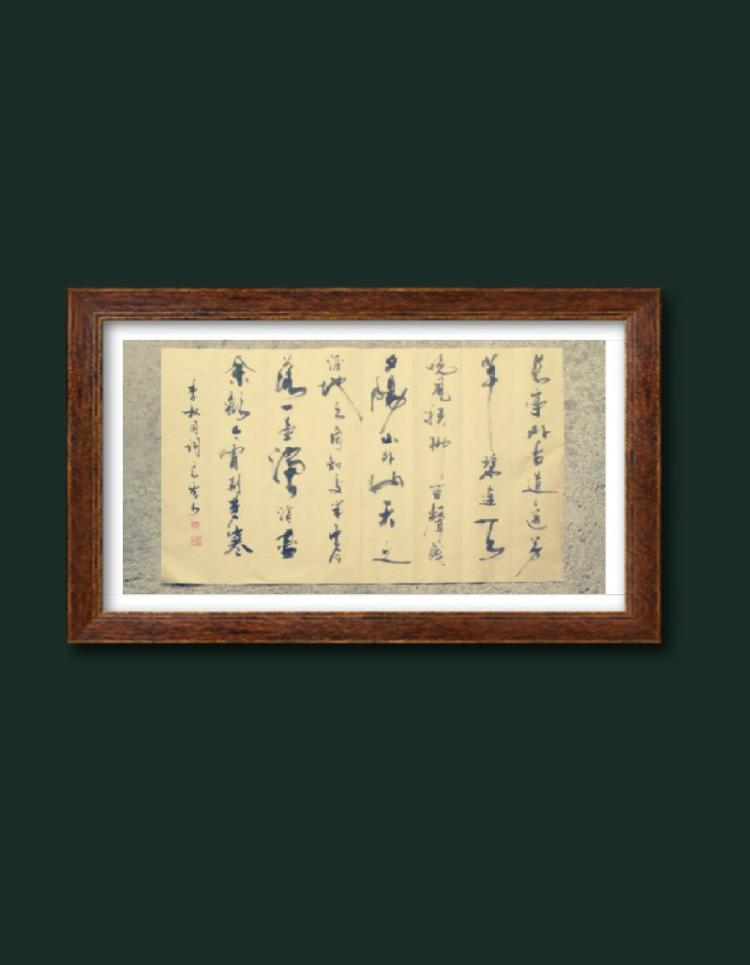 長亭外古道邊芳
草碧連天
晚風拂柳笛聲殘
夕陽山外山天之
涯地之角知交半零
落一壺濁酒盡
余歡今宵別夢寒
李叔同詞